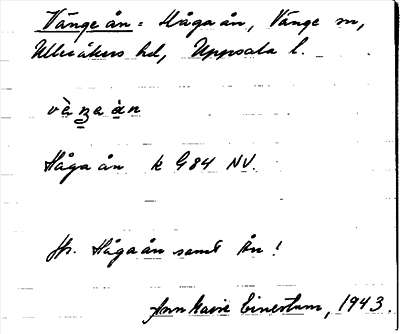 Vänge ån = Hågaån, Vänge sn,
Ulleråkers hd, Uppsala l.
Håga ån k G84 NV.
Jfr. Håga ån samt Ån!
Ann Marie Einerstam, 1943.